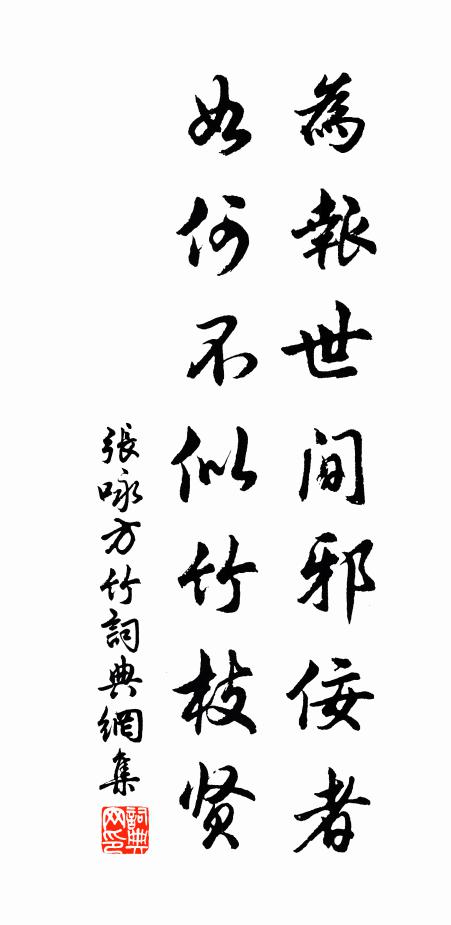 為報世間邪佞者
如何不似竹枝贤
張咏方竹詞典網集
詞典网印